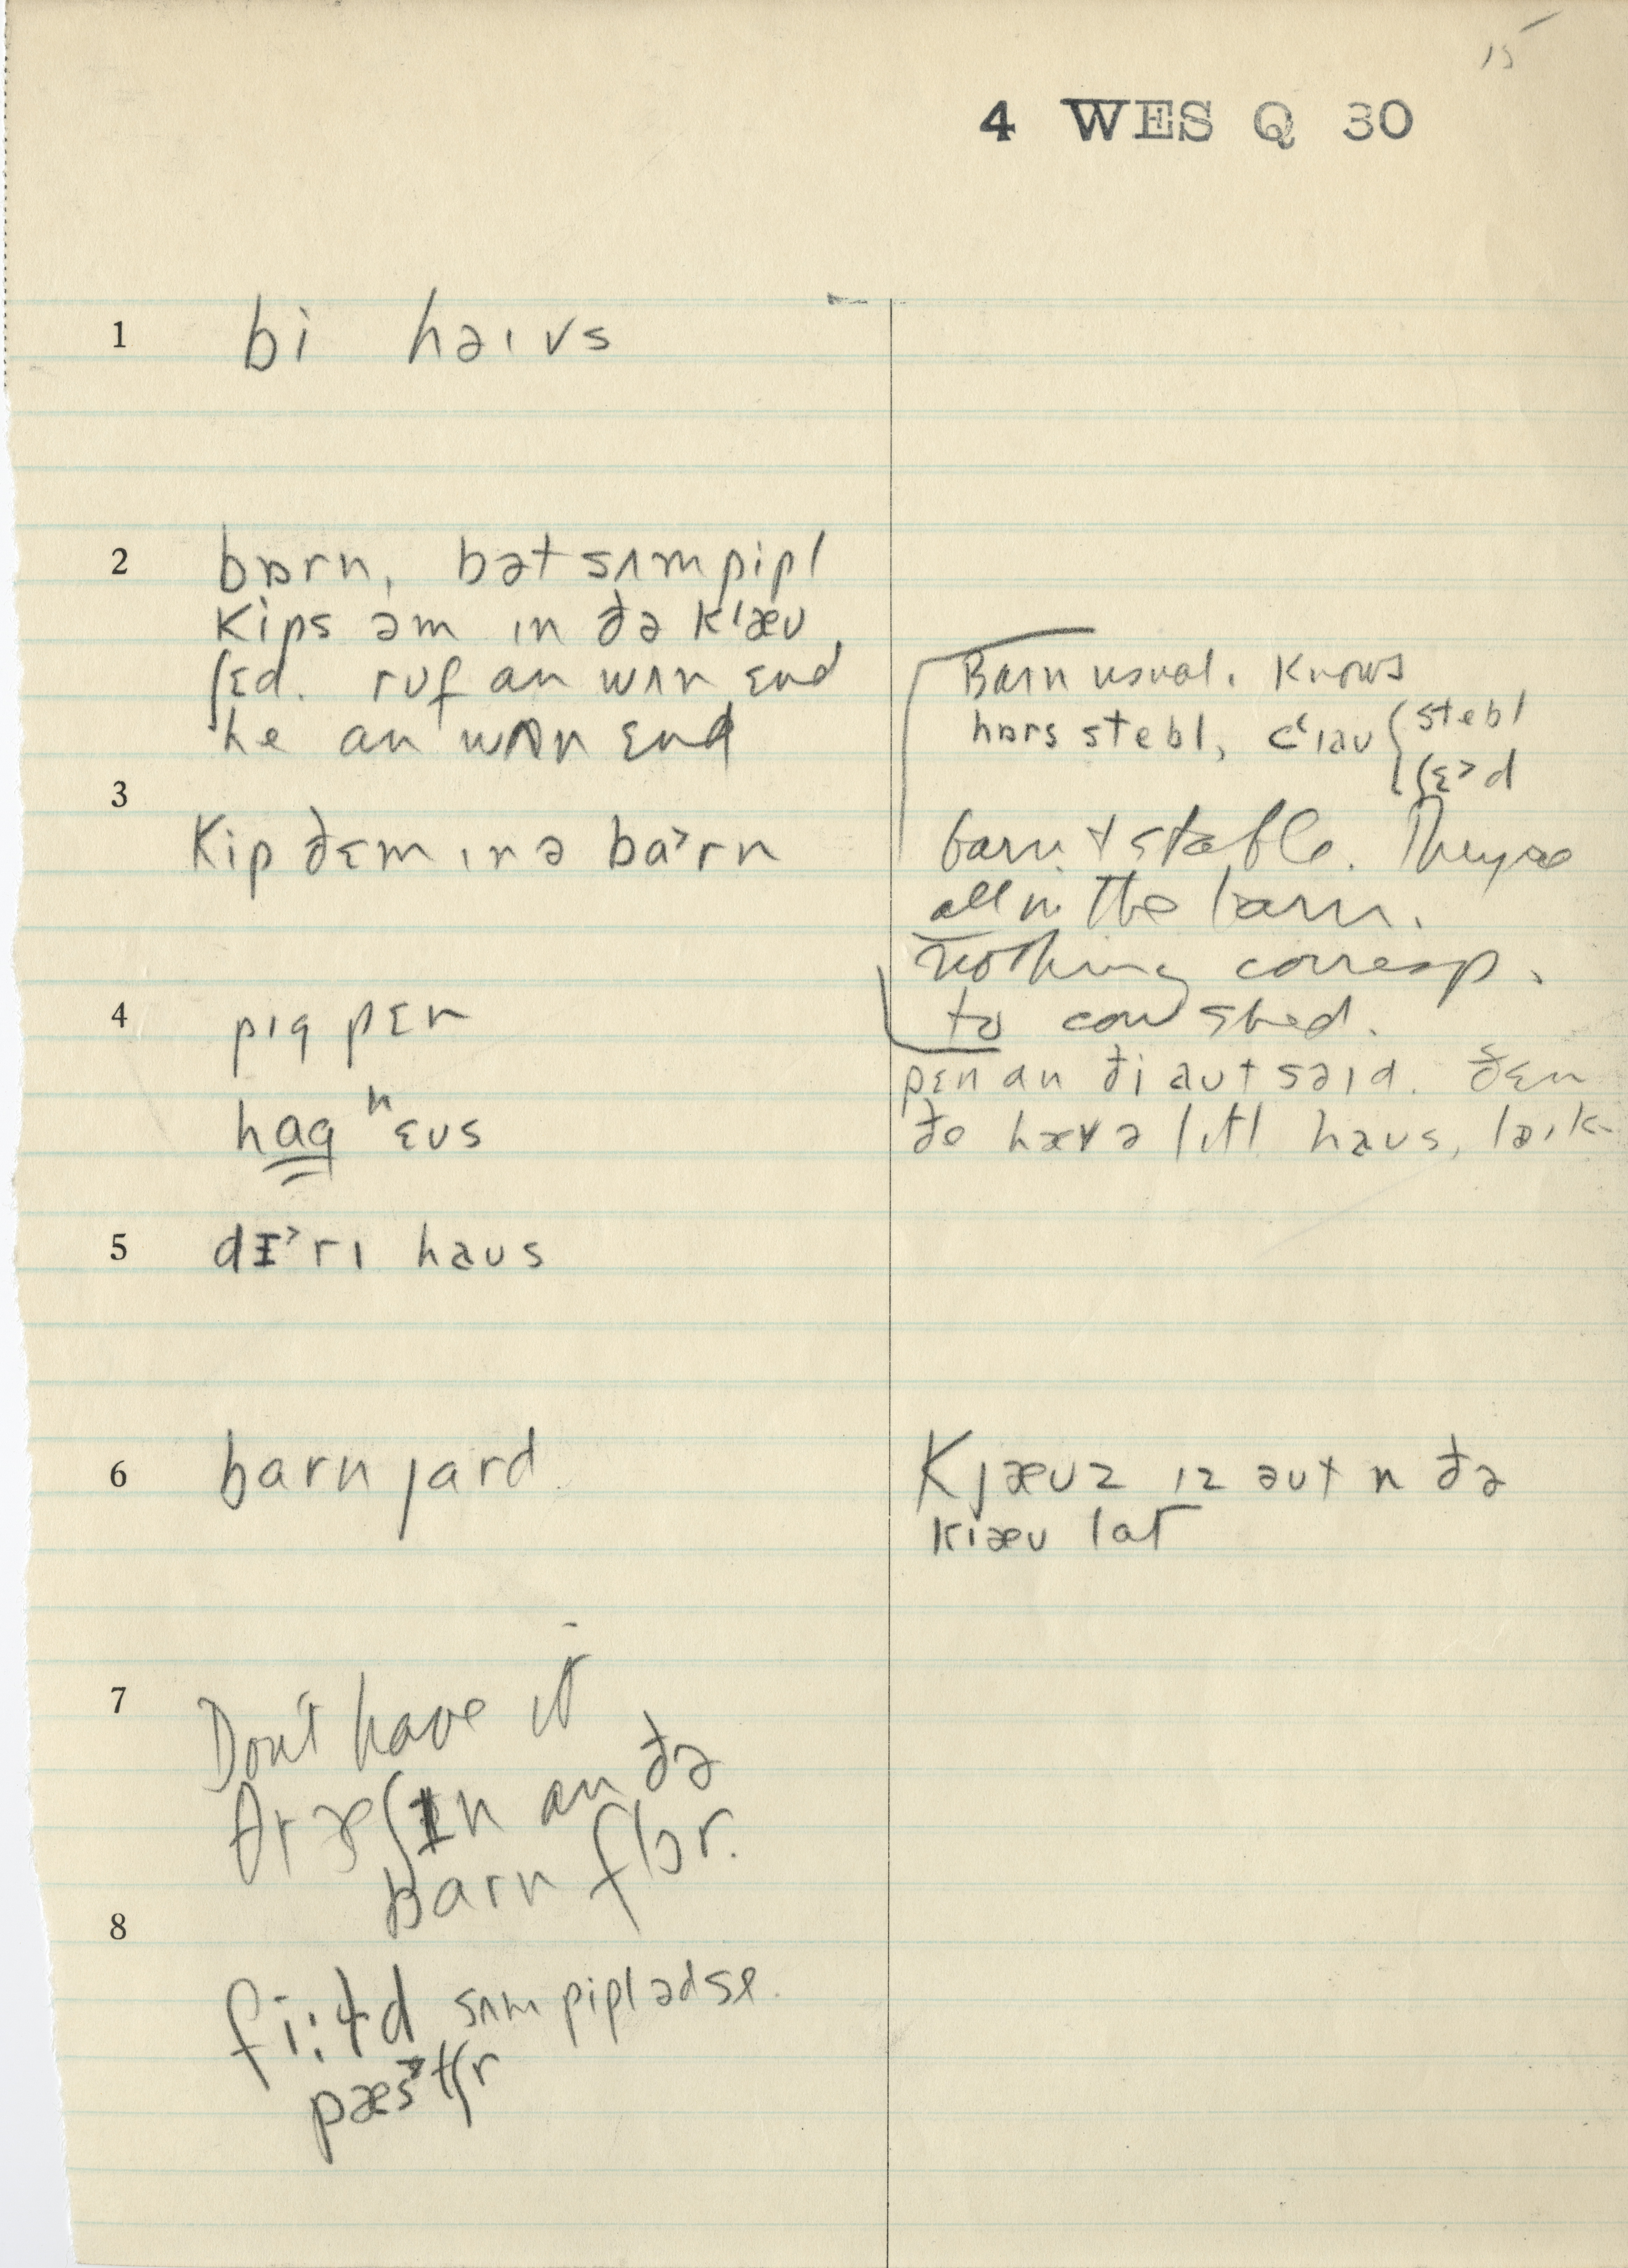 15
4 WES Q 30
1 bi həɪʊs
2 bɒrn, bət sʌm pipl
kips əm ɪn ðə kꞌæʊ
ʃɛd. rʊf an wʌn ɛnd
he an wʌn ɛnd
Barn usual. Knows
hɒrs stebl, cʻɪaʊ { stebl
ʃɛ˃d
3
kip ðɛm ɪn ə ba˃rn
barn + stable. They're
all in the barn.
nothing corresp.
to cow shed.
4 pɪg pɛn
pɛn an ði aʊt səɪd. ðɛn
hag hɛʊs
ðe hæv ə lɪtl haʊs, ləɪk
5 dɪ˃rɪ haʊs
6 barn jard
Kjæʊz ɪz əʊt n ðə
kɪæʊ lat
7 Don't have it
θræʃɪn an ðə
barn flɔr.
8
fi:ɫd sʌm pipl ədse
pæs˃tʃr